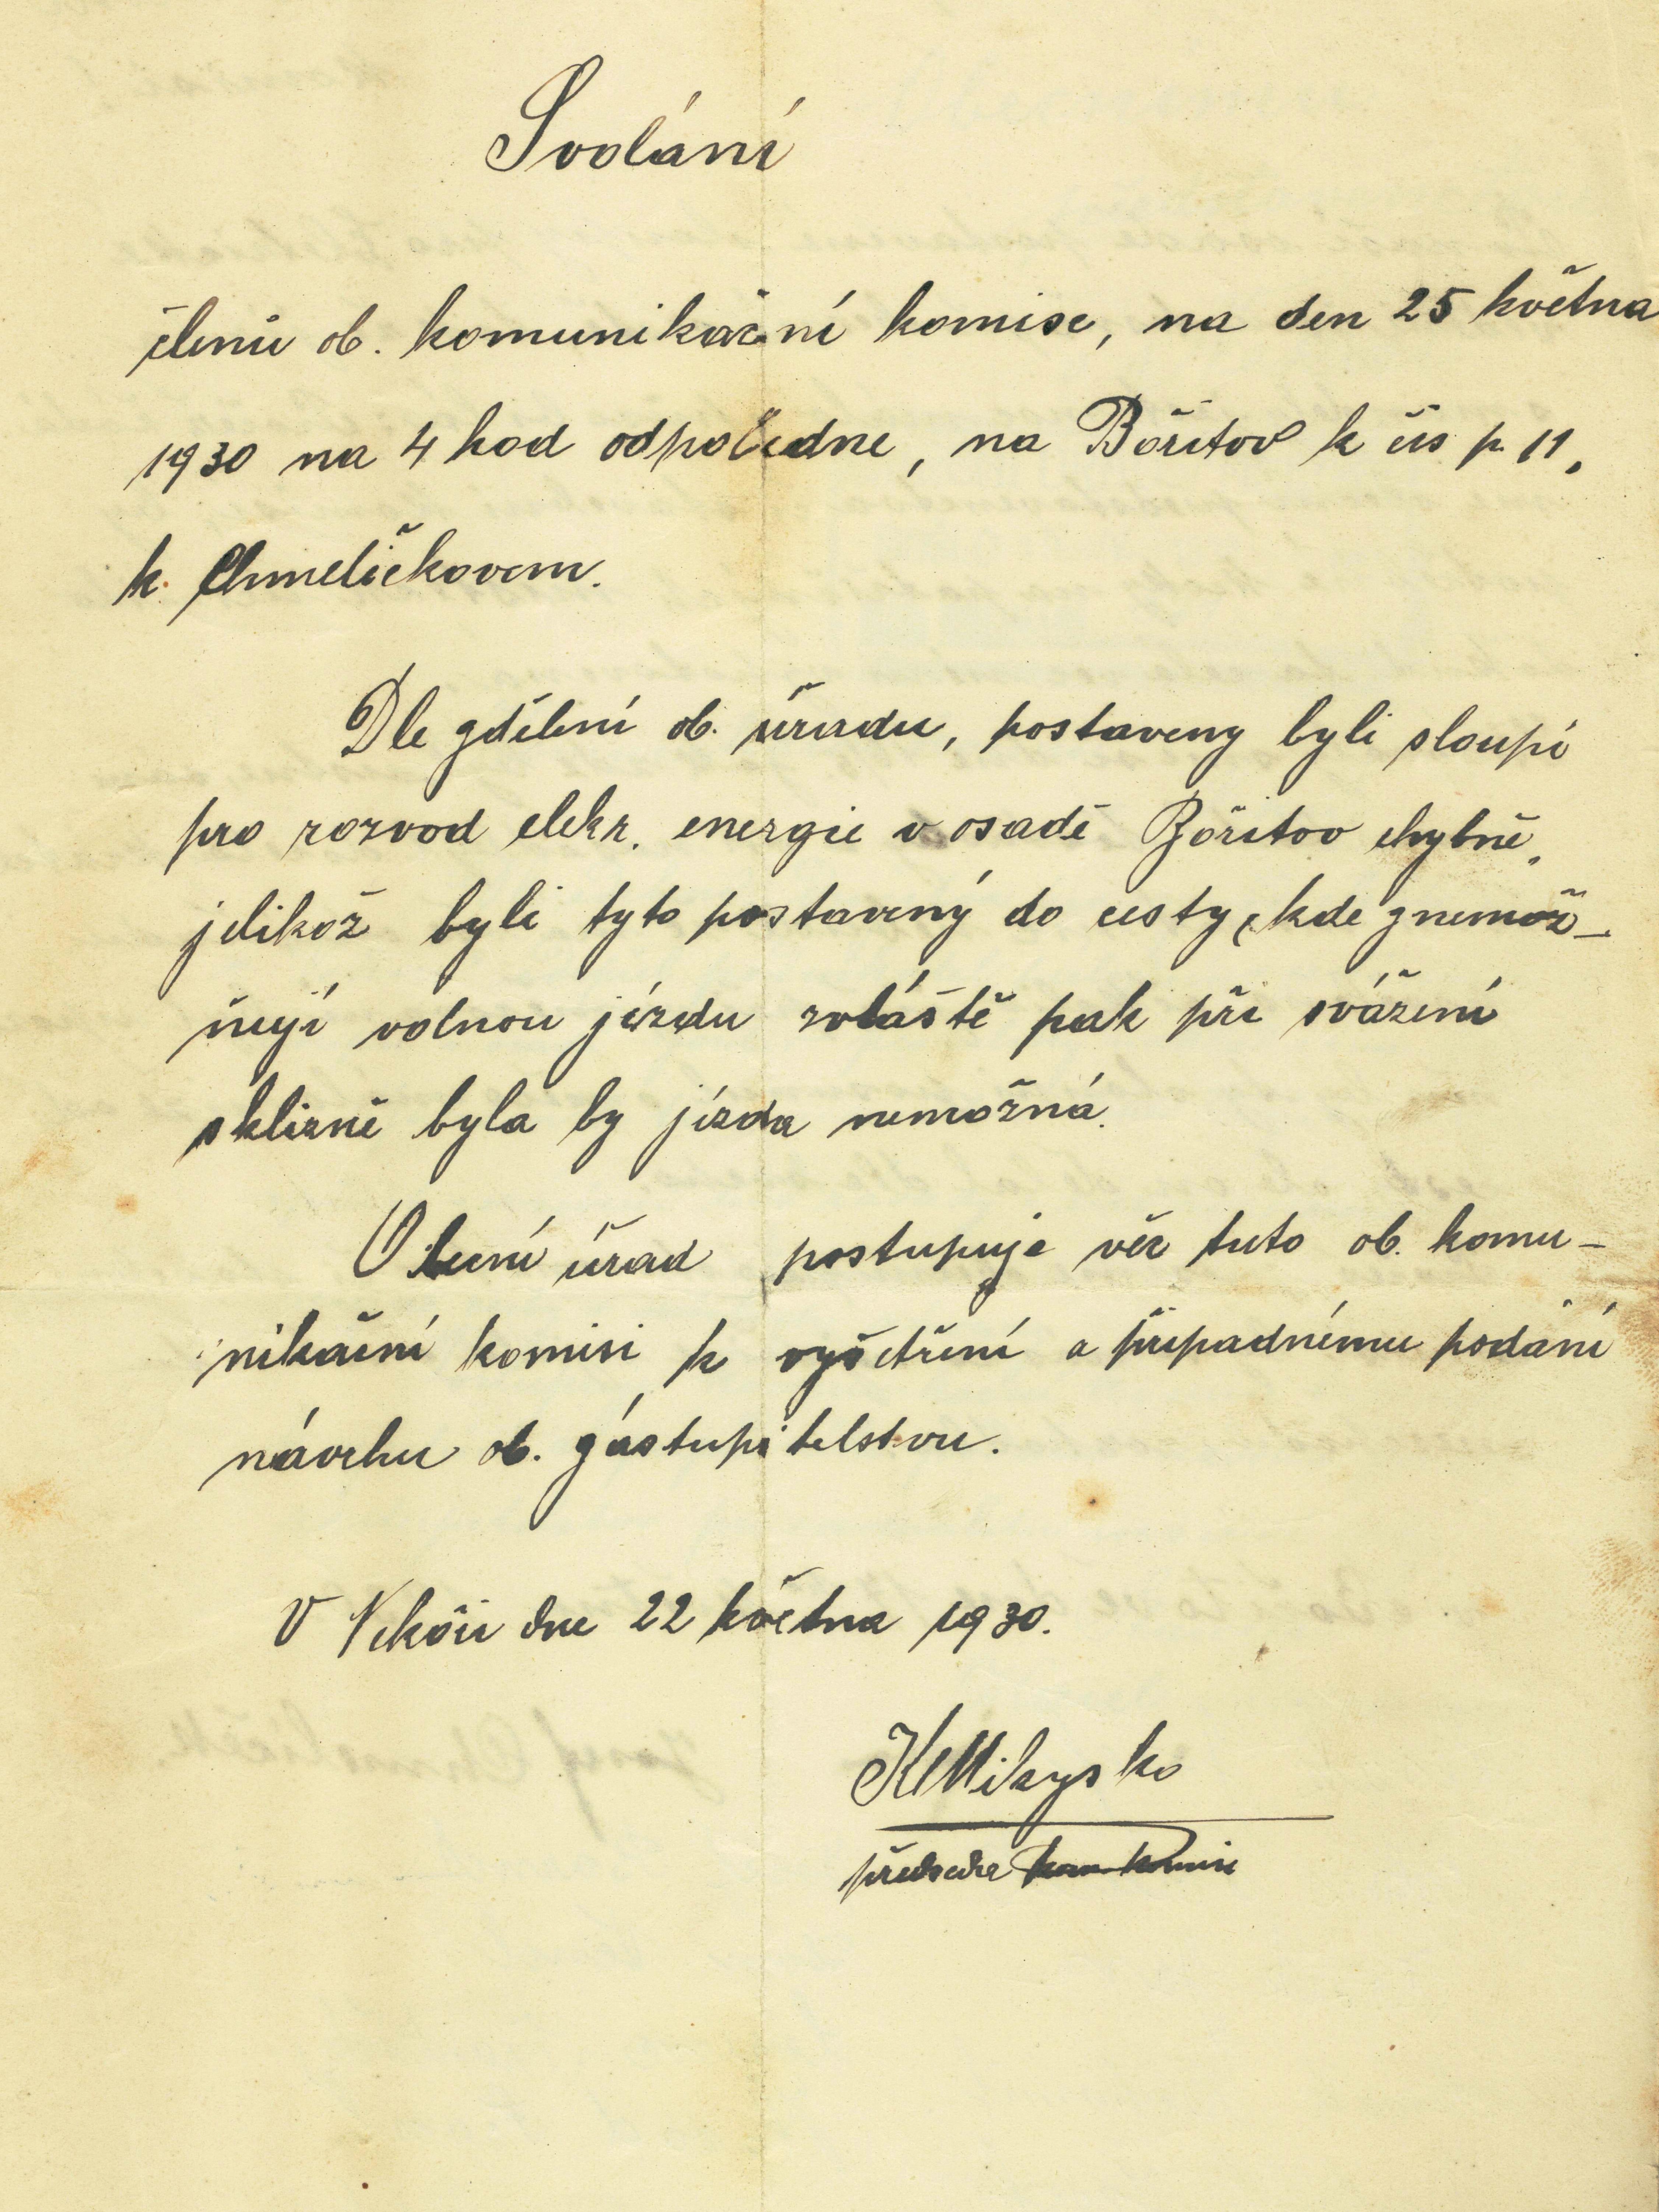 Svolání
členů ob. komunikační komise, na den 25 května
1930 na 4 hod odpoledne, na Bořitov k čís p. 11,
k Chmelíčkovem.
Dle zdělení ob. úřadu, postaveny byli sloupi
pro rozvod elekr. energie v osadě Bořitov chybně,
jelikož byli tyto postavený do cesty, kde znemož-
ňují volnou jízdu zvláště pak při svážení
sklizně byla by jízda nemožná.
Obecní úřad postupuje věc tuto ob. komu-
nikační komisi k vyšetření a případnému podání
návrhu ob. zástupitelstvu.
V Nekoři dne 22 května 1930.
předseda kom komise